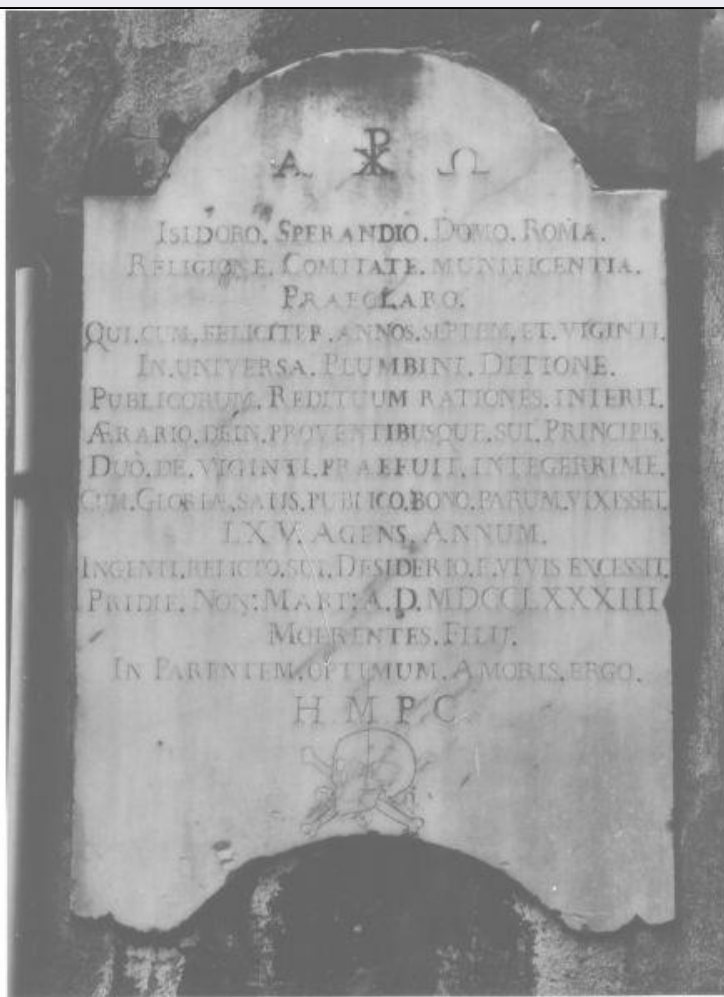 A ☧ Ω
ISIDORO. SPERANDIO. DOMO. ROMA.
RELIGIONE. COMITATE. MUNIFICENTIA.
PRAECLARO.
QUI. CUM. FELICITER. ANNOS. SEPTEM. ET. VIGINTI.
IN. UNIVERSA. PLUMBINI. DITIONE.
PUBLICORUM. REDITUUM RATIONES. INIERIT.
ÆRARIO. DEIN. PROVENTIBUSQUE. SUI. PRINCIPIS.
DUO. DE. VIGINTI. PRAEFUIT. INTEGERRIME.
CUM. GLORIÆ. SATIS. PUBLICO. BONO. PARUM. VIXISSET.
LXV. AGENS. ANNUM.
INGENTI. RELICTO. SUI. DESIDERIO. E. VIVIS EXCESSIT.
PRIDIE. NON: MART: A. D. MDCCLXXXIII.
MOERENTES. FILII.
IN PARENTEM. OPTIMUM. AMORIS. ERGO.
H M P C